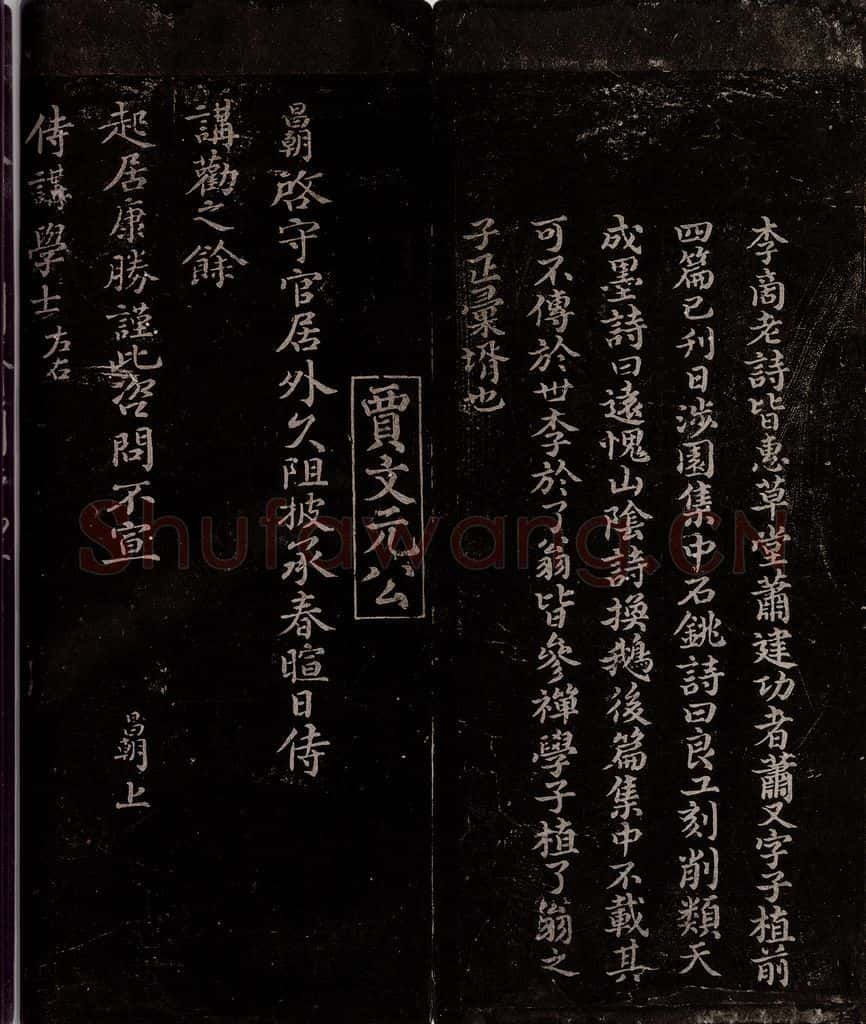 李商老詩皆惠草堂蕭建功者蕭又字子植前
四篇已刋日涉園集中石銚詩曰良工刻削類天
成墨詩曰遠愧山陰詩換鵝後篇集中不載其
可不傳於世李於了翁皆參禪學子植了翁之
子正彙壻也
賈文元公
昌朝啓守官居外久阻披承春暄日侍
講勸之餘
起居康勝謹此咨問不宣 昌朝上
侍講學士左右
Shufawang.CN